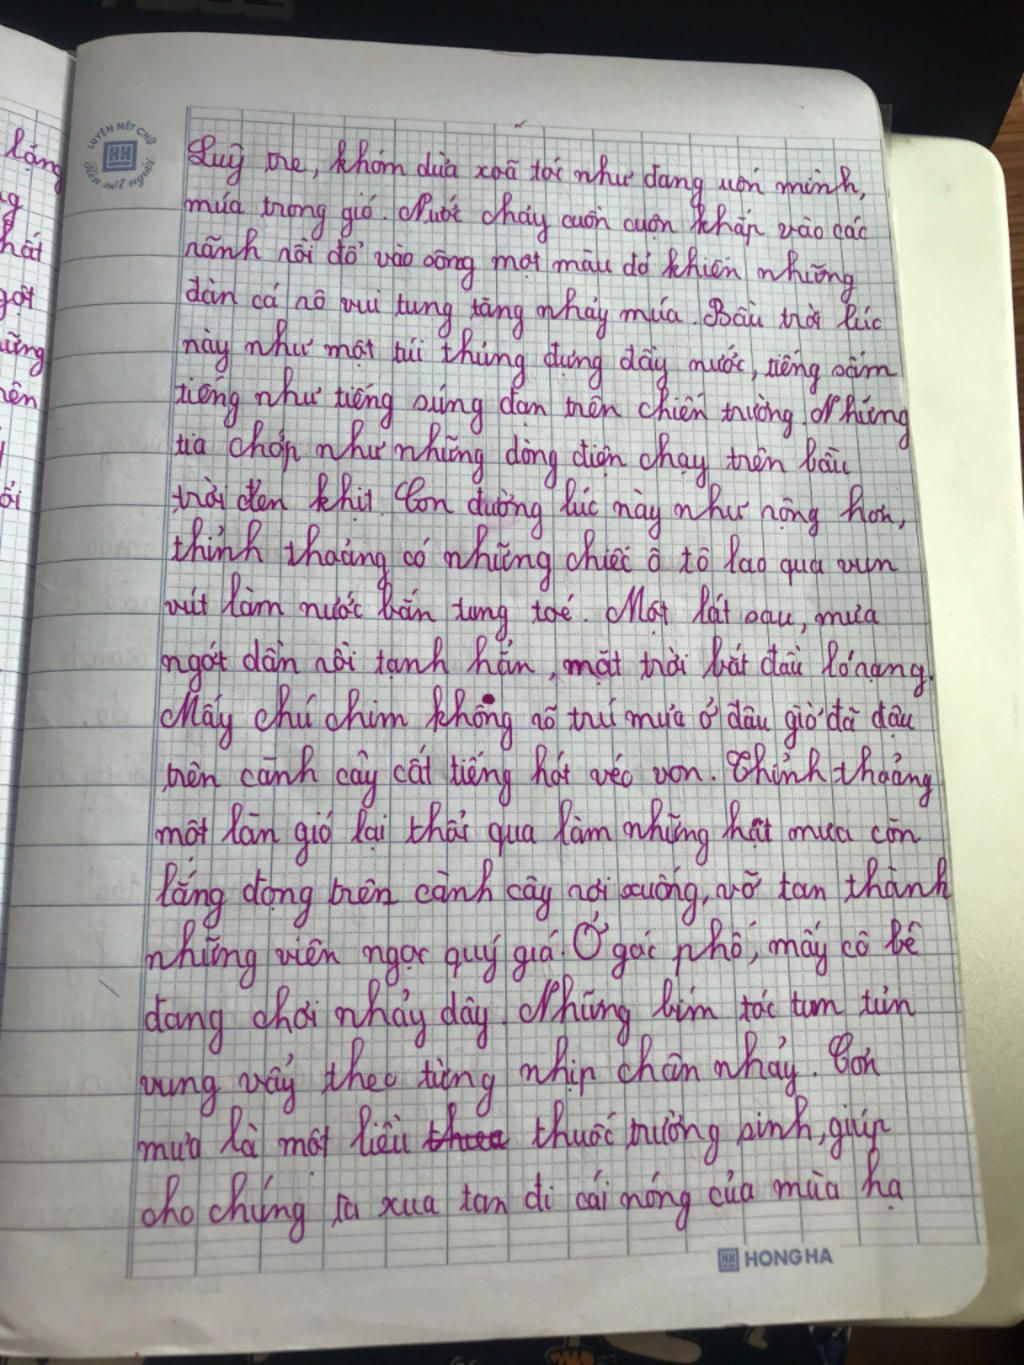 lặng
hất
gọt
ững
ên
ối
LUYỆN NÉT CHỮ
Rèn nết người
HH
Luỹ tre, khóm dừa xoã tóc như đang uốn mình,
múa trong gió. Nước chảy cuồn cuộn khắp vào các
rãnh rồi đổ vào sông một màu đỏ khiến những
đàn cá rô vui tung tăng nhảy múa. Bầu trời lúc
này như một túi thủng đựng đầy nước, tiếng sấm
tiếng như tiếng súng đạn trên chiến trường. Những
tia chớp như những dòng điện chạy trên bầu
trời đen khịt. Con đường lúc này như rộng hơn,
thỉnh thoảng có những chiếc ô tô lao qua vun
vút làm nước bắn tung toé. Một lát sau, mưa
ngớt dần rồi tạnh hẳn, mặt trời bắt đầu ló rạng.
Mấy chú chim không rõ trú mưa ở đâu giờ đã đậu
trên cành cây cất tiếng hót véo von. Thỉnh thoảng
một làn gió lại thổi qua làm những hạt mưa còn
lắng đọng trên cành cây rơi xuống, vỡ tan thành
những viên ngọc quý giá. Ở góc phố, mấy cô bé
đang chơi nhảy dây. Những bím tóc tum tủn
vung vẩy theo từng nhịp chân nhảy. Cơn
mưa là một liều thuốc trường sinh, giúp
cho chúng ta xua tan đi cái nóng của mùa hạ
HH HONG HA